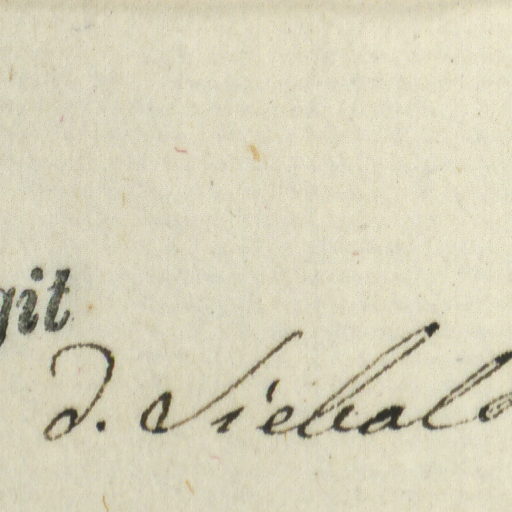 git
D. Siebald